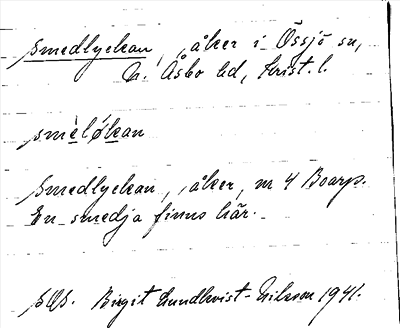 Smedlyckan, åker i Össjö sn,
N. Åsbo hd, Krist. l.
smèløkan
Smedlyckan, åker, m 4 Boarp.
En smedja finns här.
Birgit Lundkvist-Nilsson 1941.